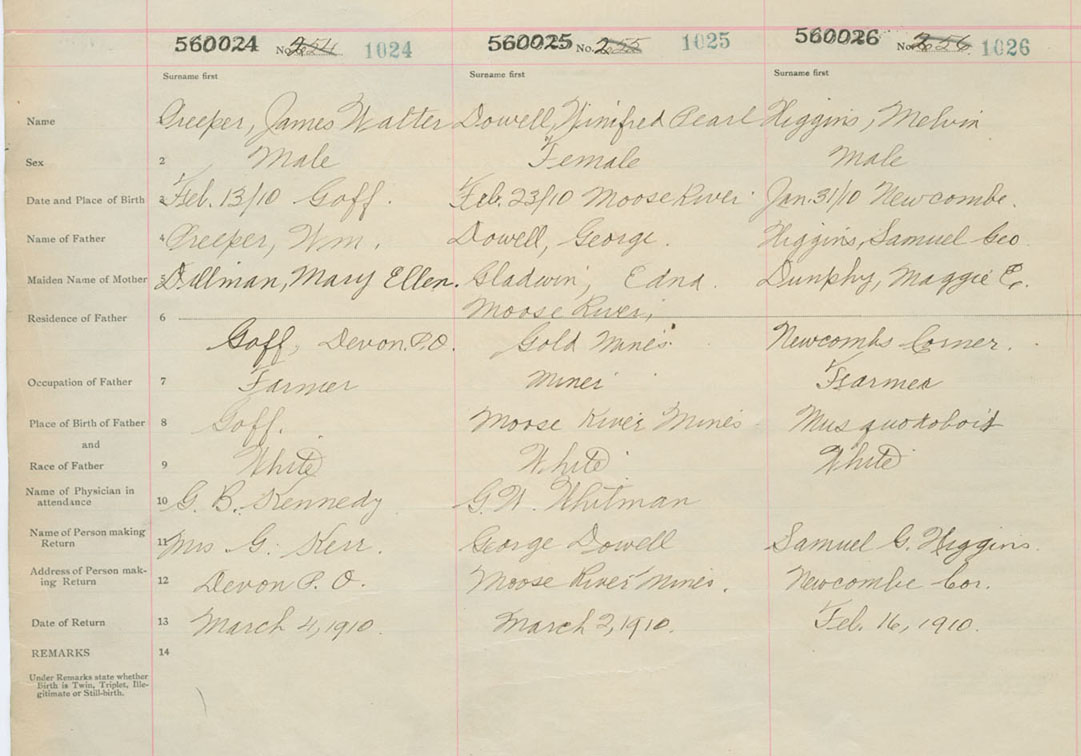 560024 No. 254 1024 560025 No. 255 1025 560026 No. 256 1026
Surname first Surname first Surname first
Name Creeper, James Walter Dowell, Winifred Pearl Higgins, Melvin
Sex 2 Male Female Male
Date and Place of Birth 3 Feb. 13/10 Goff. Feb. 23/10 Moose River Jan. 31/10 Newcombe.
Name of Father 4 Creeper, Wm. Dowell, George. Higgins, Samuel Geo
Maiden Name of Mother 5 Dillman, Mary Ellen. Gladwin, Edna. Dunphy, Maggie E.
Residence of Father 6 Moose River,
Goff, Devon P.O. Gold Mines Newcombs Corner.
Occupation of Father 7 Farmer Miner Farmer
Place of Birth of Father 8 Goff. Moose River Mines Musquodoboit
and
Race of Father 9 White White White
Name of Physician in
attendance 10 G. B. Kennedy G. W. Whitman
Name of Person making
Return 11 Mrs G. Kerr. George Dowell Samuel G. Higgins.
Address of Person mak-
ing Return 12 Devon P.O. Moose River Mines. Newcombe Cor.
Date of Return 13 March 4, 1910. March 2, 1910. Feb. 16, 1910.
REMARKS 14
Under Remarks state whether
Birth is Twin, Triplet, Ille-
gitimate or Still-birth.